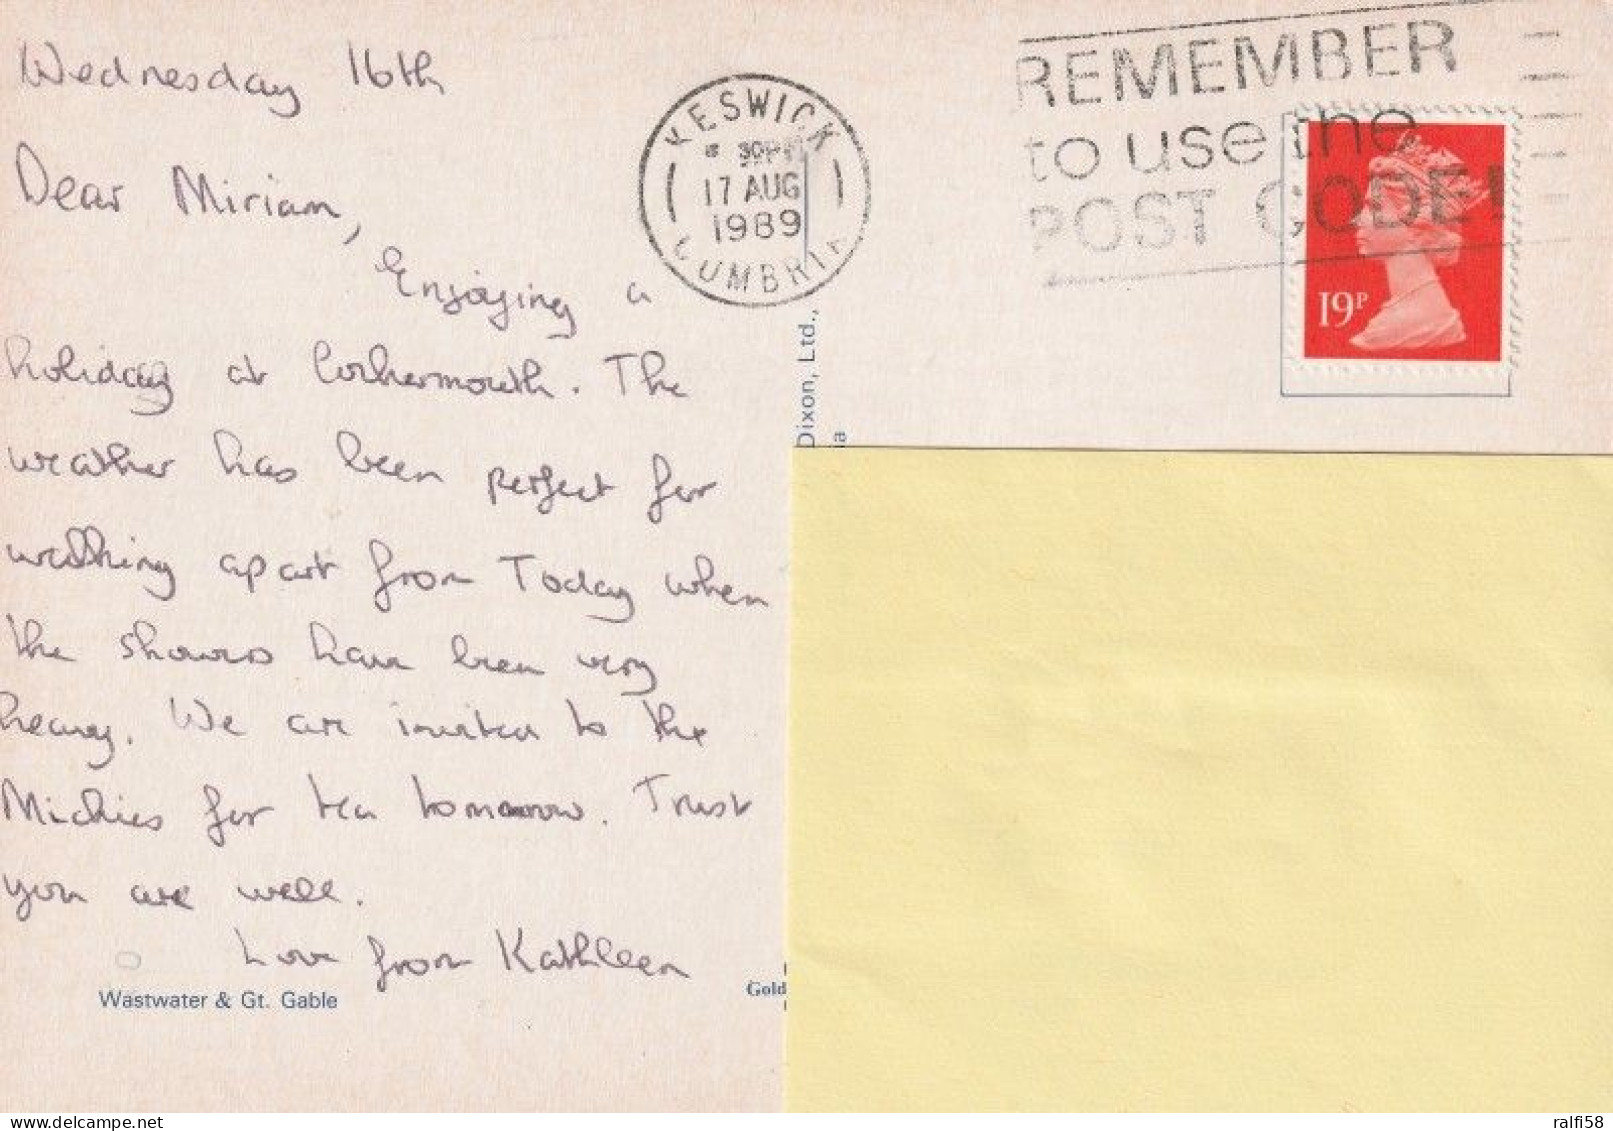 Wednesday 16th
Dear Miriam,
Enjoying a
holiday at Cockermouth. The
weather has been perfect for
walking apart from Today when
the showers have been very
heavy. We are invited to the
Michies for tea tomorrow. Trust
you are well.
Love from Kathleen
Wastwater & Gt. Gable
KESWICK
30PM
17 AUG
1989
CUMBRIA
REMEMBER
to use the
POST CODE!
19P
Dixon, Ltd.,
ia
Gold
ralfi58